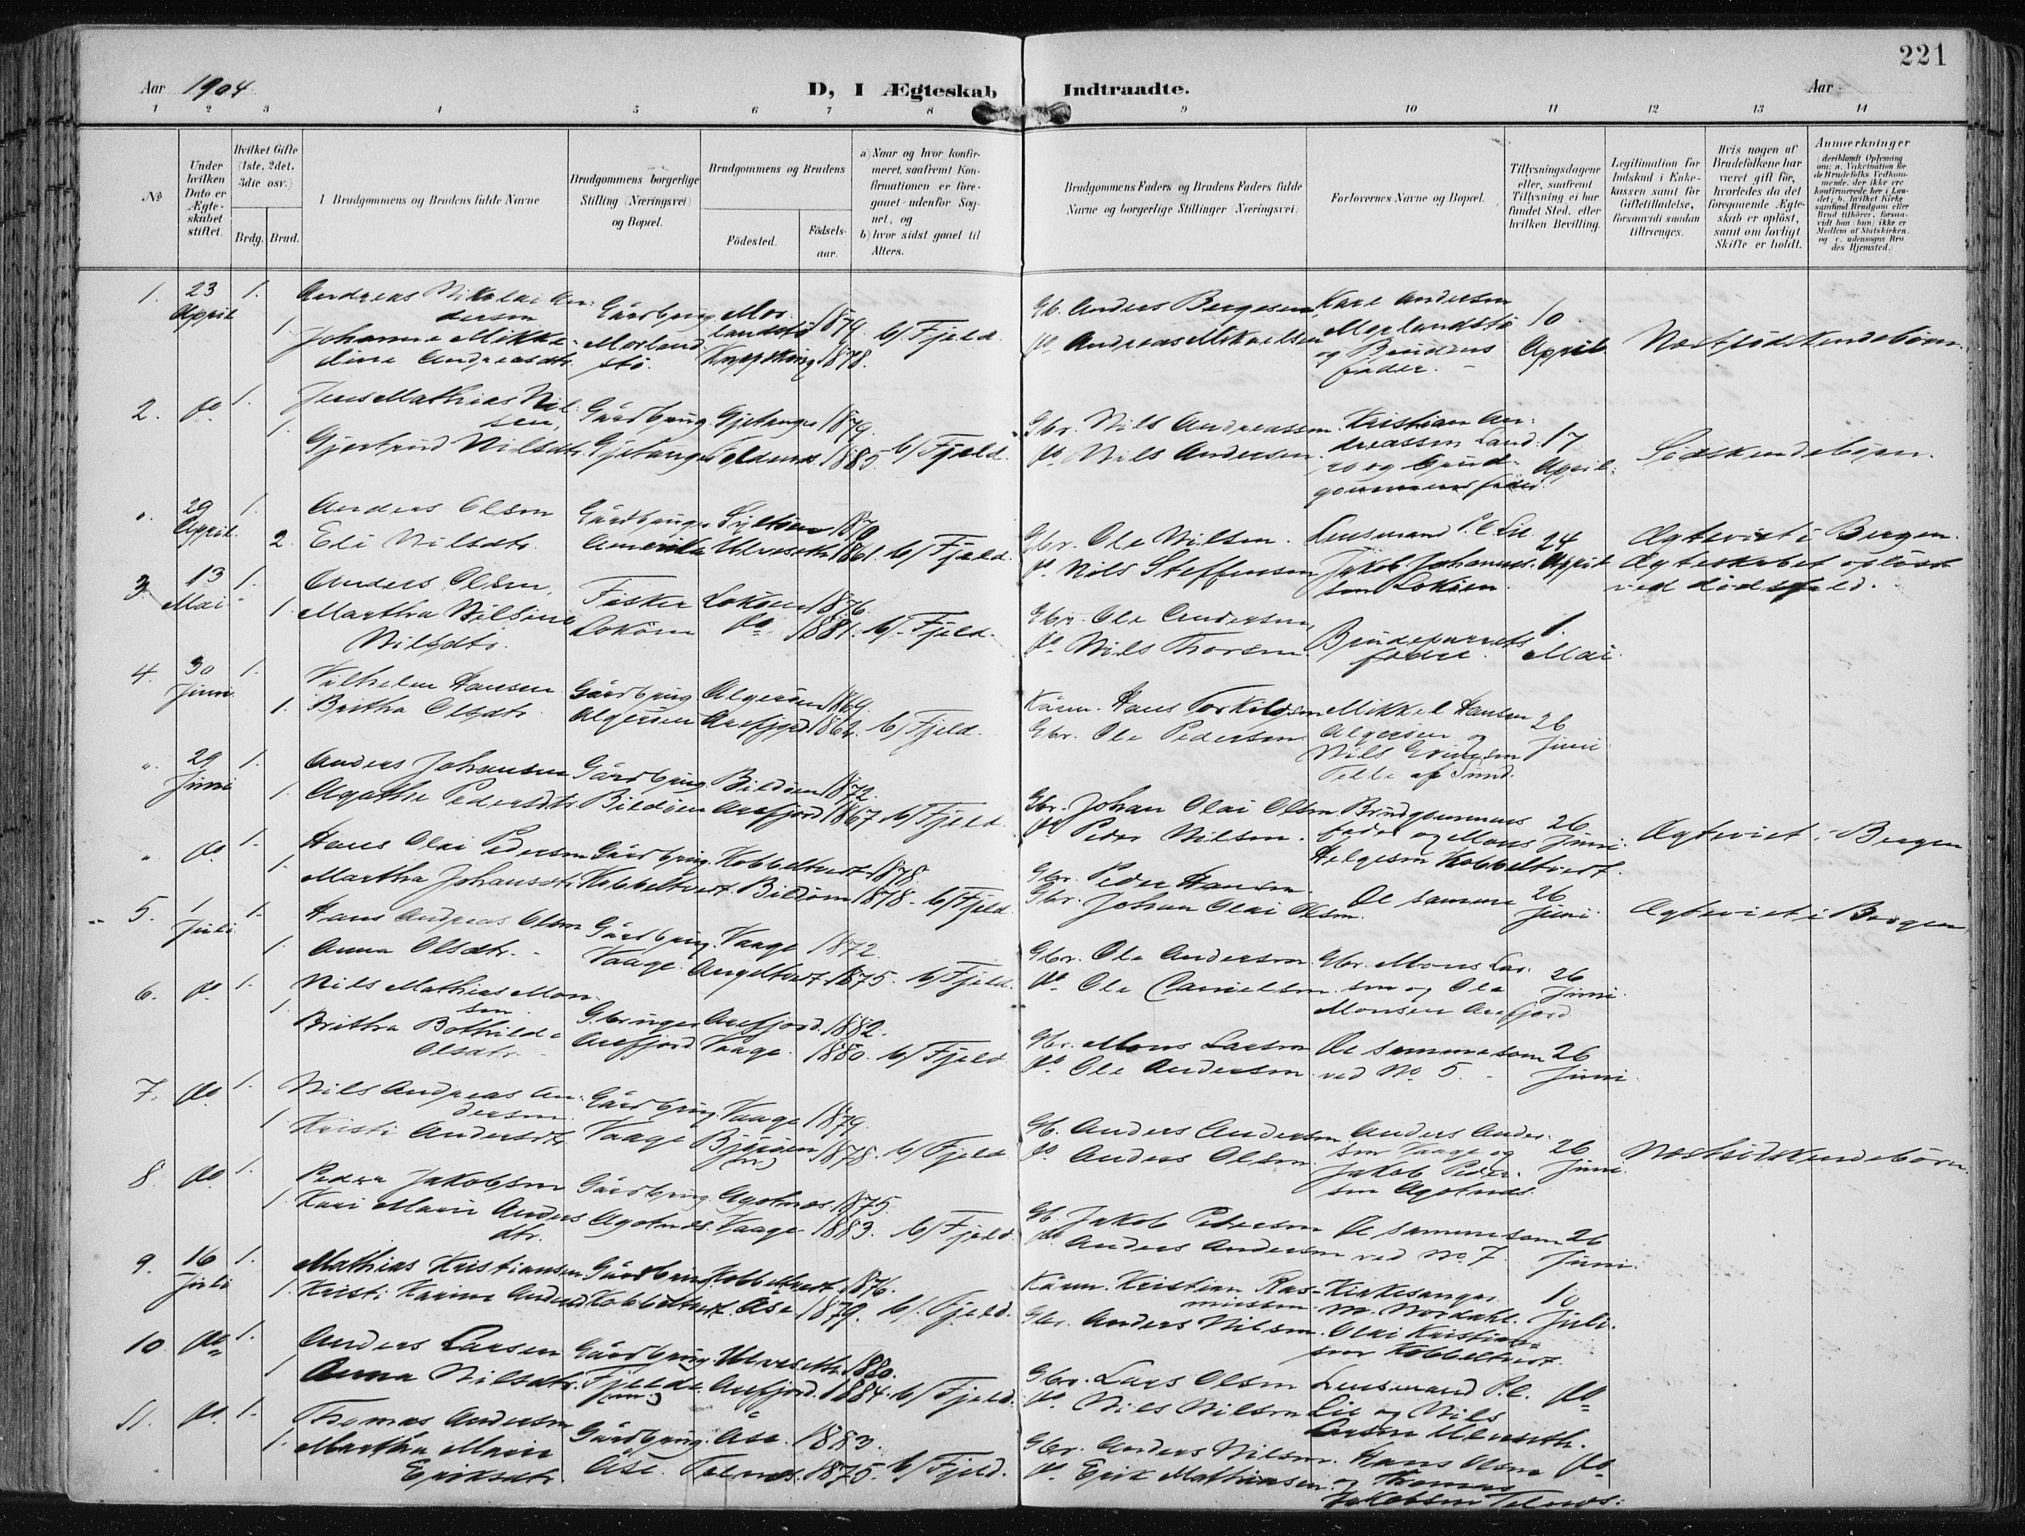 221
Aar 1904
D, I Ægteskab Indtraadte.
Aar
1 2 3 4 5 6 7 8 9 10 11 12 13 14
No
Under hvilken Dato er Ægteskabet stiftet.
Hvilket Gifte (1ste, 2det, 3die osv.)
Brdg. Brud.
Brudgommens og Brudens fulde Navne
Brudgommens borgerlige Stilling (Næringsvei) og Bopæl.
Brudgommens og Brudens
Fødested.
Fødselsaar.
a) Naar og hvor konfirmeret, saafremt Konfirmationen er foregaaet udenfor Sognet, og
b) hvor sidst gaaet til Alters.
Brudgommens Faders og Brudens Faders fulde Navne og borgerlige Stillinger (Næringsvei)
Forlovernes Navne og Bopæl.
Tillysningsdagene eller, saafremt Tillysning ei har fundet Sted, efter hvilken Bevilling.
Legitimation for Indskud i Enkekassen samt for Giftetilladelse, forsaavidt saadan tiltrænges.
Hvis nogen af Brudefolkene har været gift før, hvorledes da det foregaaende Ægteskab er opløst, samt om lovligt Skifte er holdt.
Anmærkninger
1. 23 April 1. Andreas Nikolai Andersen Gårdbrug. Morlandstø 1879.
1. Johanne Mikkeline Andreasdtr. Morlandstø. Knappskog 1878. b/ Fjeld.
Gb. Anders Bergesen
do Andreas Mikkelsen
Karl Andersen Morlandstø og Brudens fader.
10 April
Næstsødskendebørn.
2. do. 1. Jens Mathias Nilsen, Gårdbrug. Gjetanger 1879.
1. Gjertrud Nilsdtr. Gjetanger Toldnes 1885. b/ Fjeld.
Gbr. Nils Andreassen.
do. Nils Andersen.
Kristian Andreassen Landro og Brudgommens fader.
17 April.
Sødskendebørn.
" 29 April. 1. Anders Olsen Gårdbruger
2. Eli Nilsdtr. Amerika Ulveseth 1861. b/ Fjeld.
Gbr. Ole Nilsen.
do. Nils Steffensen
Lensmand P. C. Lie
Jakob Johannessen Lokøen.
24 April
Ægteviet i Bergen.
Ægteskabet opløst ved dødsfald.
3. 13 Mai 1. Anders Olsen, Fisker Lokøen 1876.
1. Martha Nilsine Nilsdtr. Lokøen do. 1881. b/ Fjeld.
Gbr. Ole Andersen,
do Nils Thoresen.
Brudeparrets fædre.
1. Mai
4. 30 Juni. 1. Vilhelm Hansen Gårdbrug. Algerøen 1869.
1. Britha Olsdtr. Algerøen Arefjord 1864. b/ Fjeld.
Kårm. Hans Torkildsen
Gbr. Ole Pedersen
Mikkel Hansen Algerøen og Nils af Sund.
26 Juni
" 29 Juni 1. Anders Johansen Gårdbrug. Bildøen 1872.
1. Agathe Pedersdtr. Bildøen Arefjord 1867 b/ Fjeld.
Gbr. Johan Olai Olsen
do Peder Nilsen.
Brudgommens fader og Mons Helgesen Kobbeltvedt.
26 Juni.
Ægteviet i Bergen
" do. 1. Hans Olai Pedersen Gårdbrug. Kobbeltvedt 1878.
1. Martha Johansdtr. Kobbeltvedt. Bildøen 1878. b/ Fjeld.
Gbr. Peder Hansen.
Gbr. Johan Olai Olsen.
De samme
26 Juni.
Ægteviet i Bergen.
5. 1 Juli 1. Hans Andreas Olsen Gårdbrug. Vaage 1872.
1. Anna Olsdtr. Vaage. Angeltvedt 1875. b/ Fjeld.
Gbr. Ole Andersen.
do. Ole Danielsen.
Gbr. Mons Larsen og Ole Monsen Arefjord
26 Juni.
6. do. 1. Nils Mathias Monsen Gbruger Arefjord. 1882.
1. Britha Bothilda Olsdtr. Arefjord Vaage. 1880. b/ Fjeld
Gbr. Mons Larsen
do. Ole Andersen
De samme som ved No. 5.
26 Juni.
7. do. 1. Nils Andreas Andersen. Gårdbrug. Vaage 1879.
1. Kristi Andersdtr. Vaage Bjørøen 1878. b/ Fjeld
Gb. Anders Andersen
do Anders Olsen.
Anders Andersen Vaage og Jakob Pedersen Agotnæs.
26 Juni
Næstsødskendebørn
8. do. 1. Peder Jakobsen Gårdbrug. Agotnæs 1875.
1. Kari Marie Andersdtr. Agotnæs. Vaage 1883. b/ Fjeld
Gb. Jakob Pedersen
do Anders Andersen
De samme som ved No. 7.
26 Juni.
9. 16 Juli 1. Mathias Kristiansen Gårdbrug Kobbeltvedt 1876.
1. Kristi Karine Andersd. Kobbeltvedt. Åse 1879. b/. Fjeld.
Kårm. Kristian Rasmussen
Gbr. Anders Nilsen.
Kirkesanger M. Nordahl. Olai Kristiansen Kobbeltvedt.
10 Juli.
10 do. 1. Anders Larsen Gårdbrug. Ulveseth 1880.
1 Anna Nilsdtr. Fjelde Arefjord. 1884. b/ Fjeld.
Gbr. Lars Olsen
do. Nils Nilsen
Lensmand P. C. Lie og Nils Larsen Ulveseth.
do
11. do. 1. Thomas Andersen Gårdbrug. Åse 1883.
1. Martha Marie Eriksdtr. Åse. Toldnes. 1875. b/ Fjeld.
Gbr. Anders Nilsen.
do. Erik Mathiassen.
Hans Olsen og Thomas Jakobsen
do.